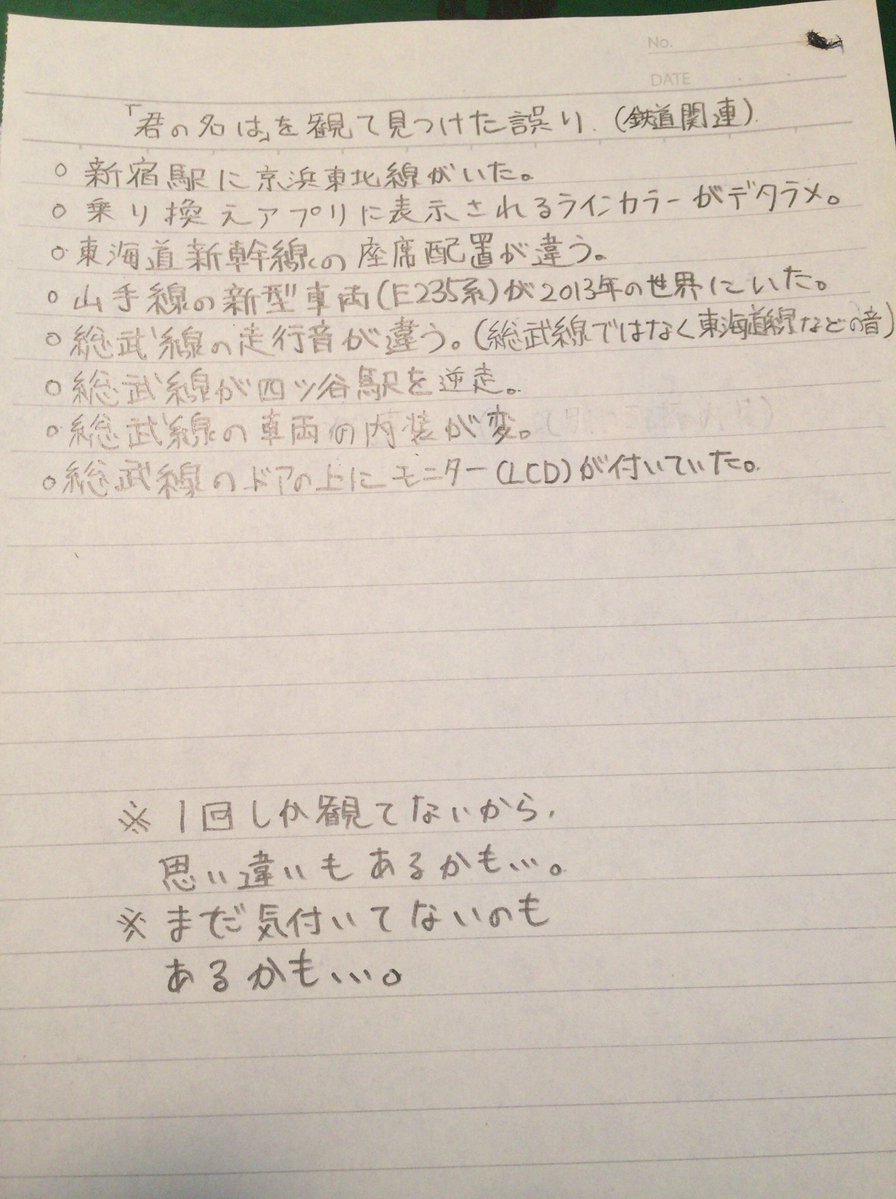 No.
DATE
「君の名は」を観て見つけた誤り.(鉄道関連)
○新宿駅に京浜東北線がいた。
○乗り換えアプリに表示されるラインカラーがデタラメ。
○東海道新幹線の座席配置が違う。
○山手線の新型車両(E235系)が2013年の世界にいた。
○総武線の走行音が違う。(総武線ではなく東海道線などの音)
○総武線が四ツ谷駅を逆走。
○総武線の車両の内装が変。
○総武線のドアの上にモニター(LCD)が付いていた。
※1回しか観てないから、
思い違いもあるかも…。
※まだ気付いてないのも
あるかも…。